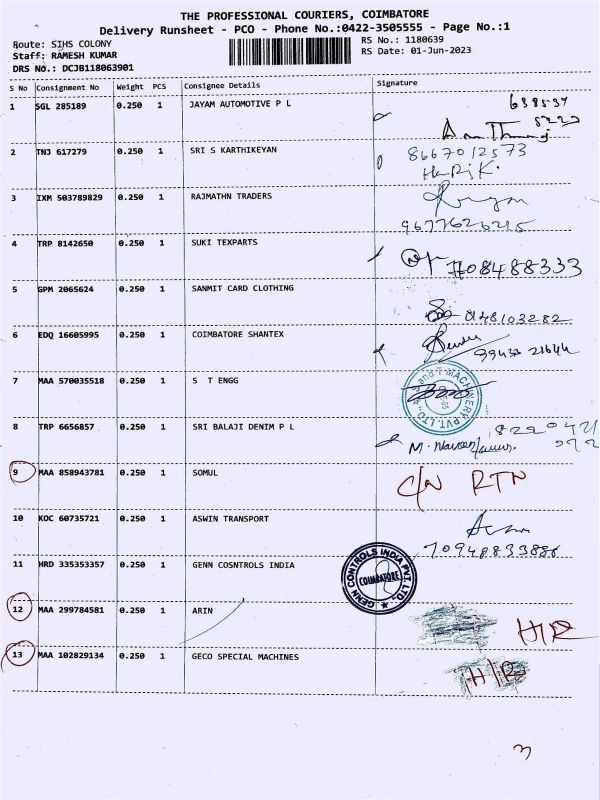 THE PROFESSIONAL COURIERS, COIMBATORE
Delivery Runsheet - PCO - Phone No.:0422-3505555 - Page No.:1
Route: SIHS COLONY
RS No.: 1180639
Staff: RAMESH KUMAR
RS Date: 01-Jun-2023
DRS No.: DCJB118063901
S No Consignment No Weight PCS Consignee Details Signature
1 SGL 285189 0.250 1 JAYAM AUTOMOTIVE P L
2 TNJ 617279 0.250 1 SRI S KARTHIKEYAN 8667012573
3 IXM 503789829 0.250 1 RAJMATHN TRADERS
9677626215
4 TRP 8142650 0.250 1 SUKI TEXPARTS
7708488333
5 GPM 2065624 0.250 1 SANMIT CARD CLOTHING
8148103282
6 EDQ 16605995 0.250 1 COIMBATORE SHANTEX
7 MAA 570035518 0.250 1 S T ENGG
MACHINERY PVT. LTD.,
8 TRP 6656857 0.250 1 SRI BALAJI DENIM P L
9 MAA 858943781 0.250 1 SOMUL C/N RTN
10 KOC 60735721 0.250 1 ASWIN TRANSPORT
11 HRD 335353357 0.250 1 GENN COSNTROLS INDIA
GENN CONTROLS INDIA PVT. LTD.,
COIMBATORE
12 MAA 299784581 0.250 1 ARIN H/R
13 MAA 102829134 0.250 1 GECO SPECIAL MACHINES H/R
3